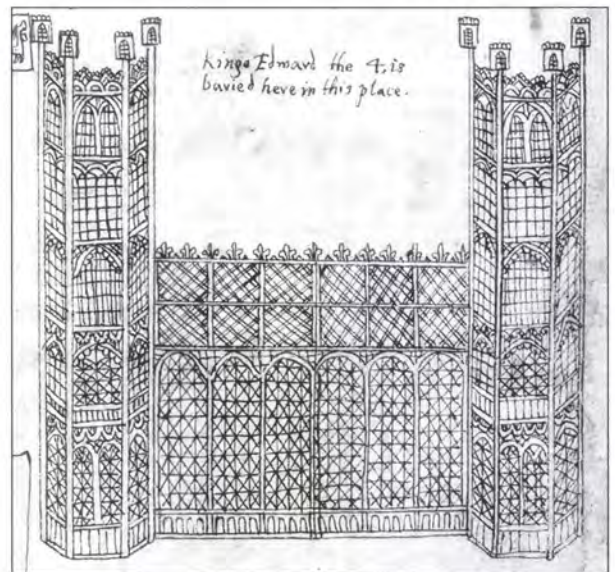 Kinge Edward the 4, is
buried here in this place.